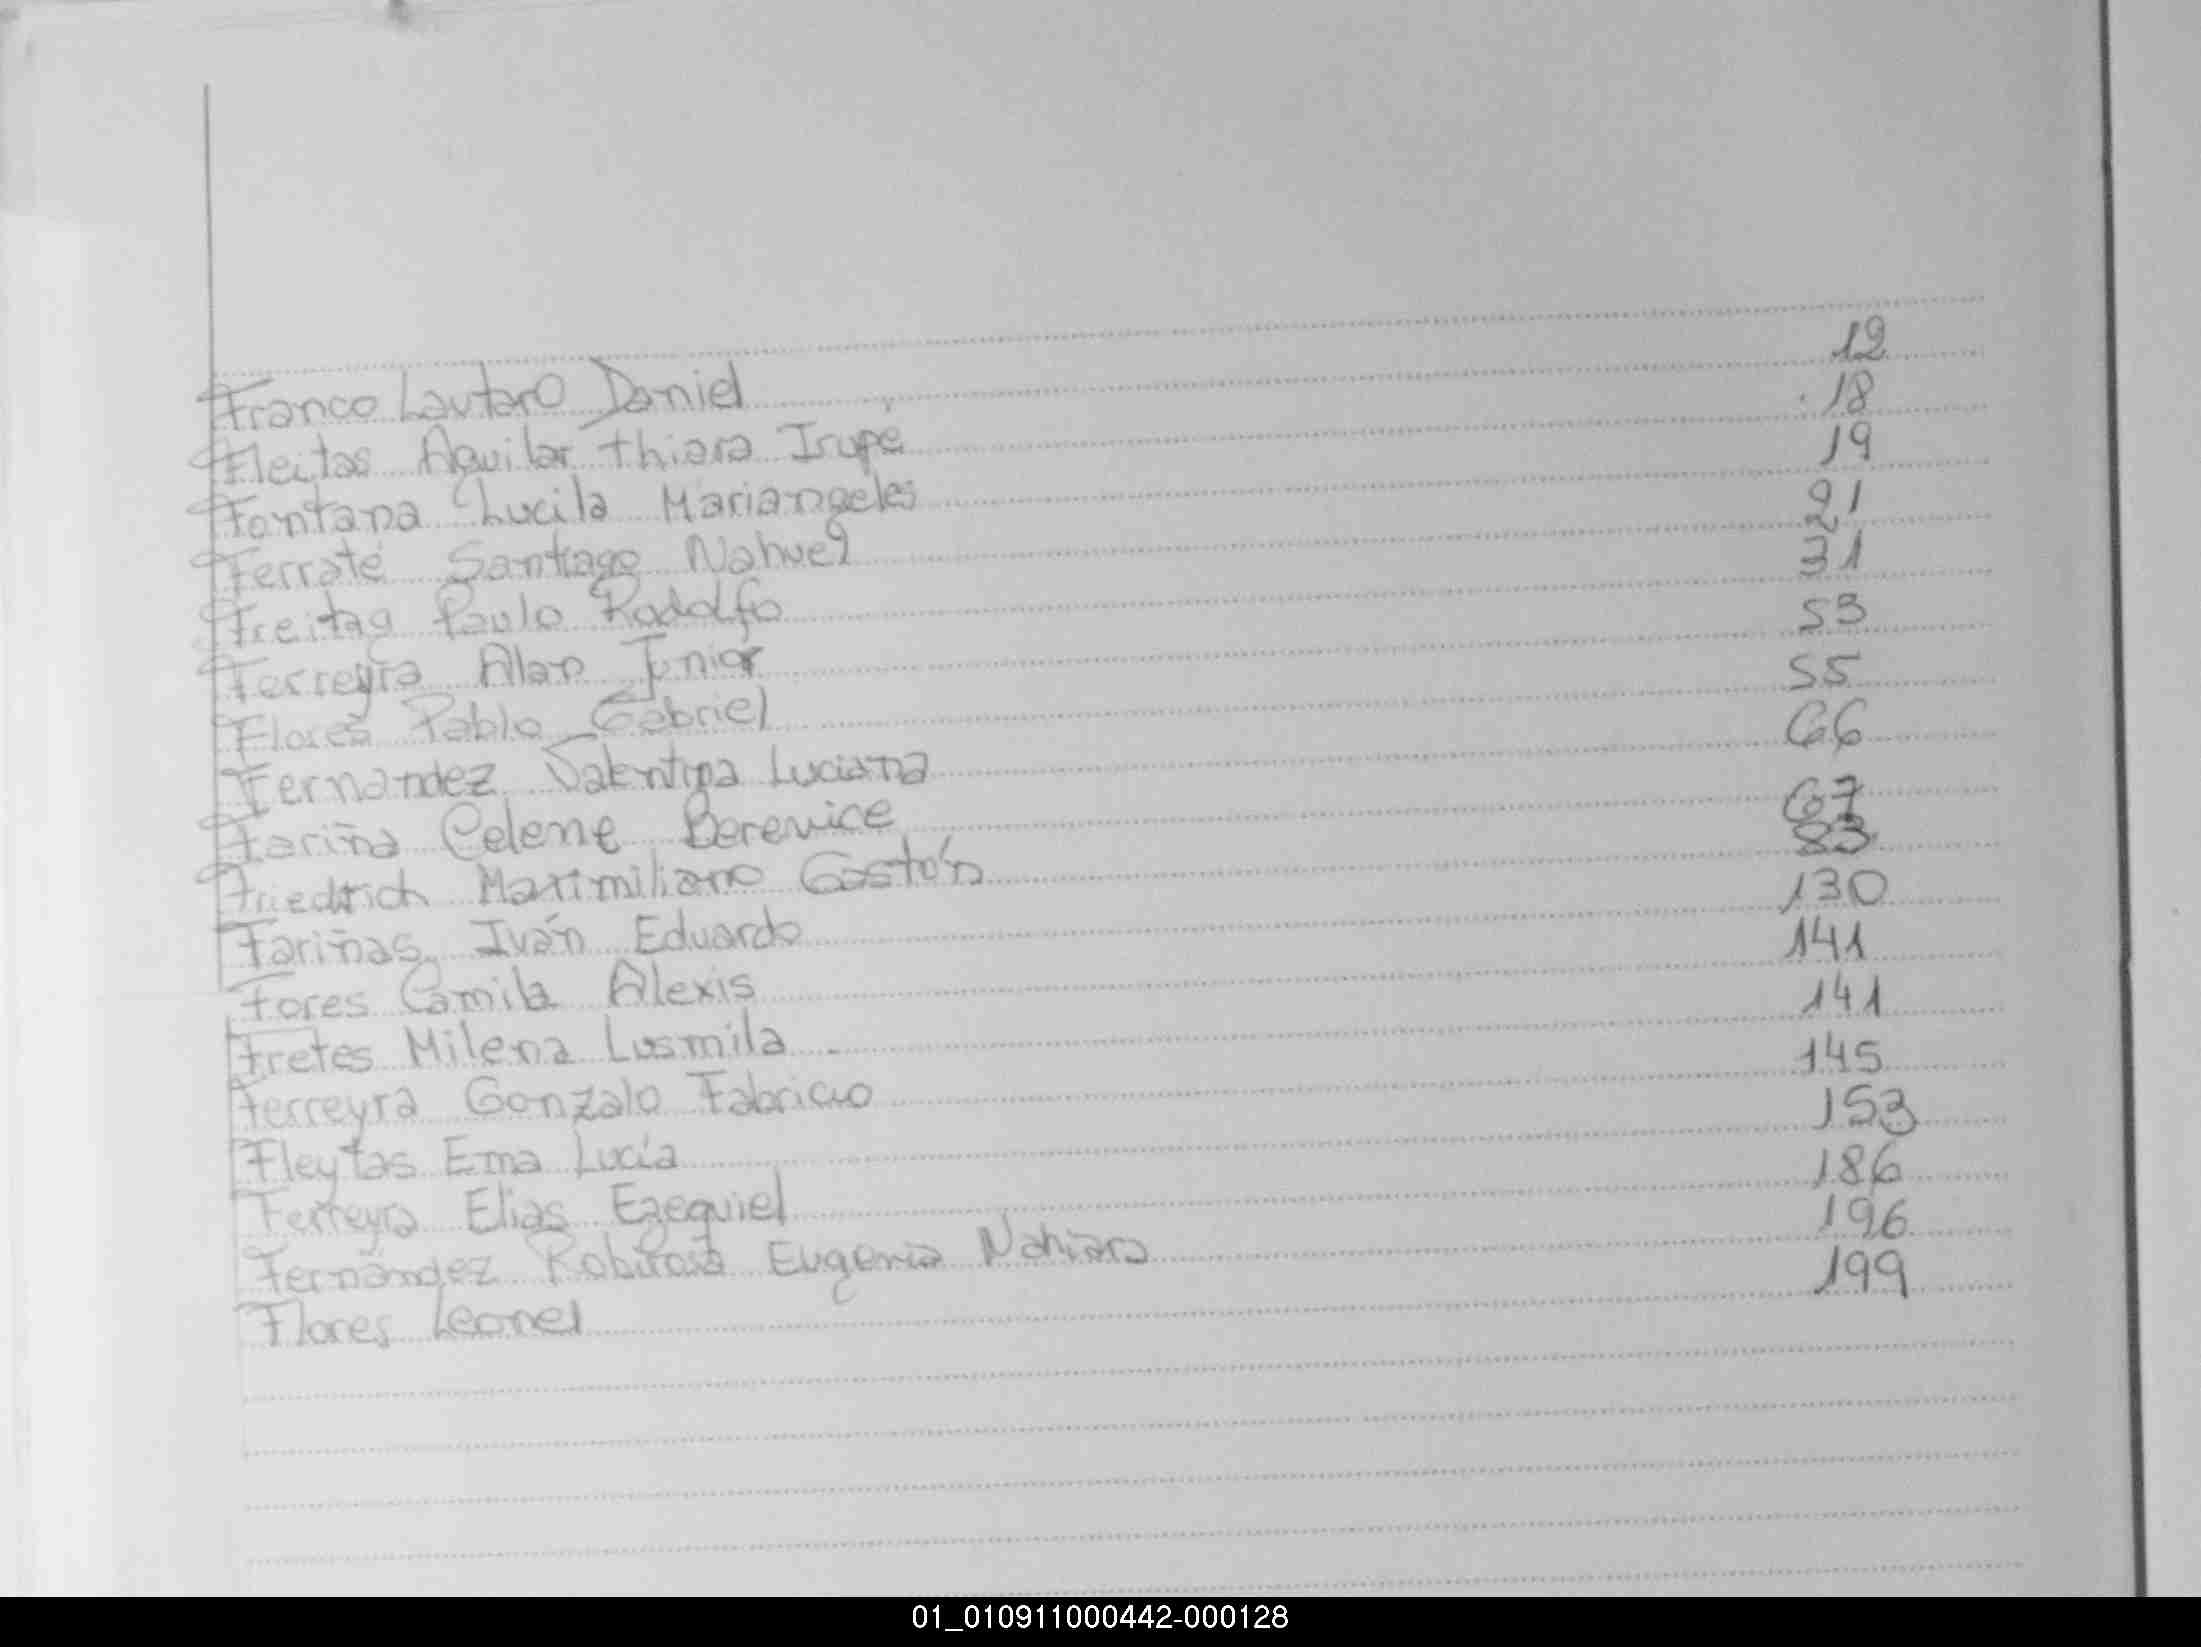 Franco Lautaro Daniel 12
Fleitas Aguilar Thiara Irupé 18
Fontana Lucila Mariangeles 19
Ferraté Santiago Nahuel 21
Freitag Paulo Rodolfo 31
Ferreyra Alan Junior 53
Flores Pablo Gabriel 55
Fernandez Valentina Luciana 66
Fariña Celene Berenice 67
Friedrich Maximiliano Gastón 83
Fariñas Iván Eduardo 130
Fores Camila Alexis 141
Fretes Milena Lusmila 141
Ferreyra Gonzalo Fabricio 145
Fleytas Ema Lucía 153
Ferreyra Elias Ezequiel 186
Fernández Robirosa Eugenia Nahiara 196
Flores Leonel 199
01_010911000442-000128